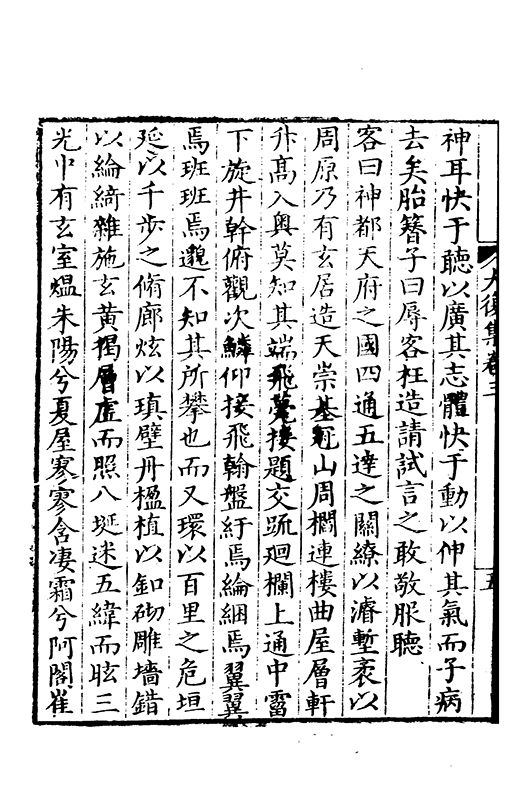 神耳快于聽以廣其志體快于動以伸其氣而子病
去矣胎簪子曰辱客枉造請試言之敢敬服聽
客曰神都天府之國四通五達之關繚以濬塹袤以
周原乃有玄居造天崇基剏山周欄連樓曲屋層軒
升高入奧莫知其端飛甍接題交疏迴欄上通中霤
下旋井幹俯觀次鱗仰接飛翰盤紆焉綸綑焉翼翼
焉班班焉邈不知其所攀也而又環以百里之危垣
延以千步之脩廊炫以瑱璧丹楹植以釦砌雕墻錯
以綸綺雜施玄黃揭層虛而照八埏迷五緯而眩三
光中有玄室煴朱陽兮夏屋寥寥含凄霜兮阿閣崔
大復集卷三
五